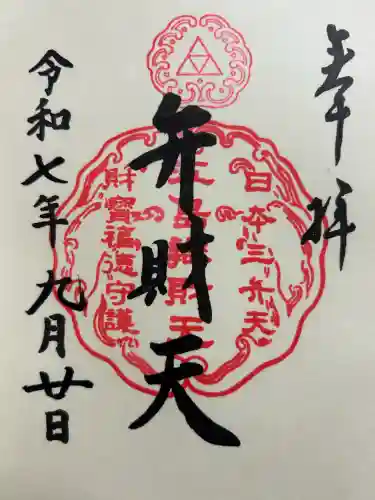 奉拝
日本三弁天
弁財天
財寳福徳守護
令和七年九月廿日